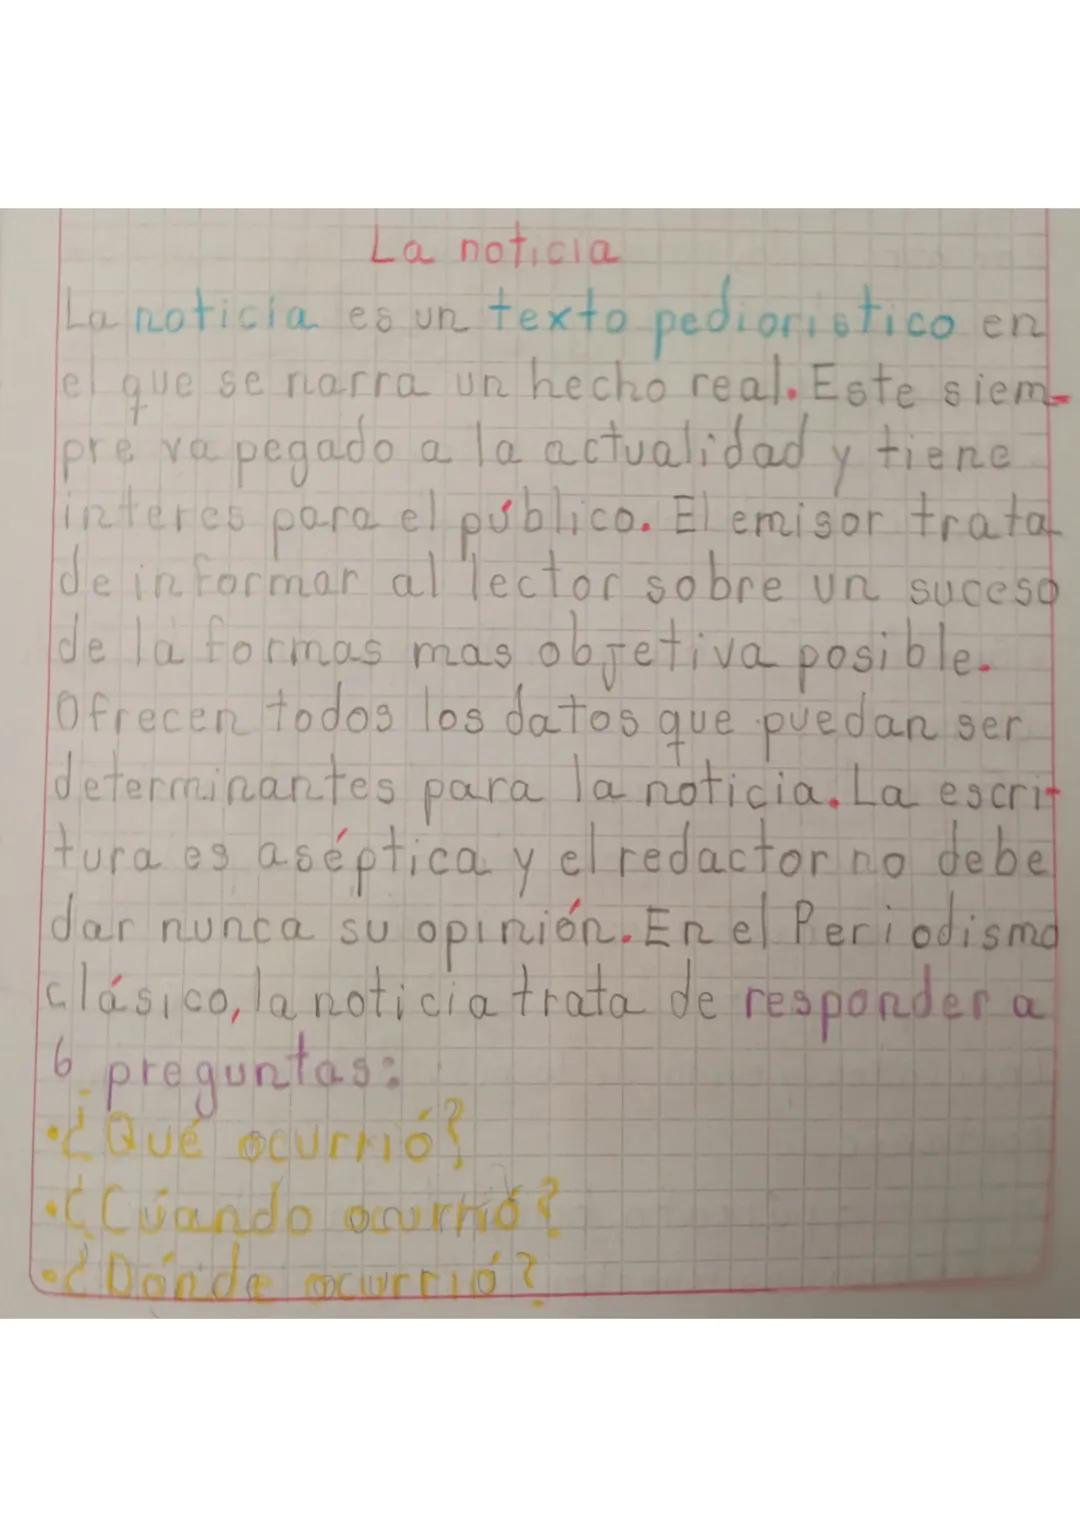 La noticia
La noticia es un texto pedioristico en
el que se narra un hecho real. Este siem-
pre va pegado a la actualidad y tiene
interes para el público. El emisor trata
de informar al lector sobre un suceso
de la formas mas objetiva posible.
Ofrecen todos los datos que puedan ser
determinantes para la noticia. La escri-
tura es aséptica y el redactor no debe
dar nunca su opinión. En el Periodismo
clásico, la noticia trata de responder a
6 preguntas:
• ¿Qué ocurrió?
• ¿Cúando ocurrió?
• ¿Dónde ocurrió?